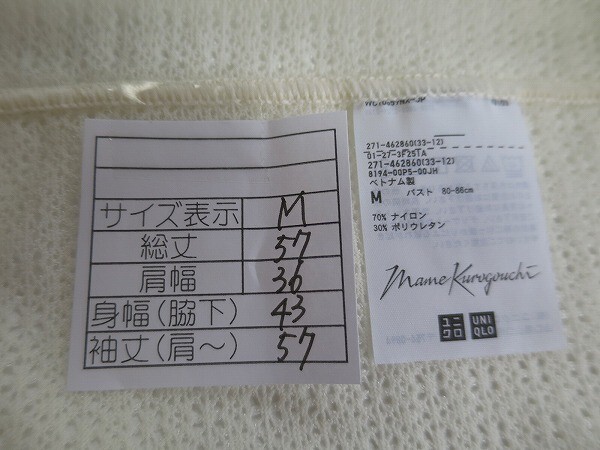 サイズ表示 M
総丈 57
肩幅 36
身幅(脇下) 43
袖丈(肩〜) 57
271-462860(33-12)
01-27-3F25TA
271-462860(33-12)
8194-00P5-00JH
ベトナム製
M バスト 80-86cm
70% ナイロン
30% ポリウレタン
Mame Kurogouchi
ユニクロ UNIQLO